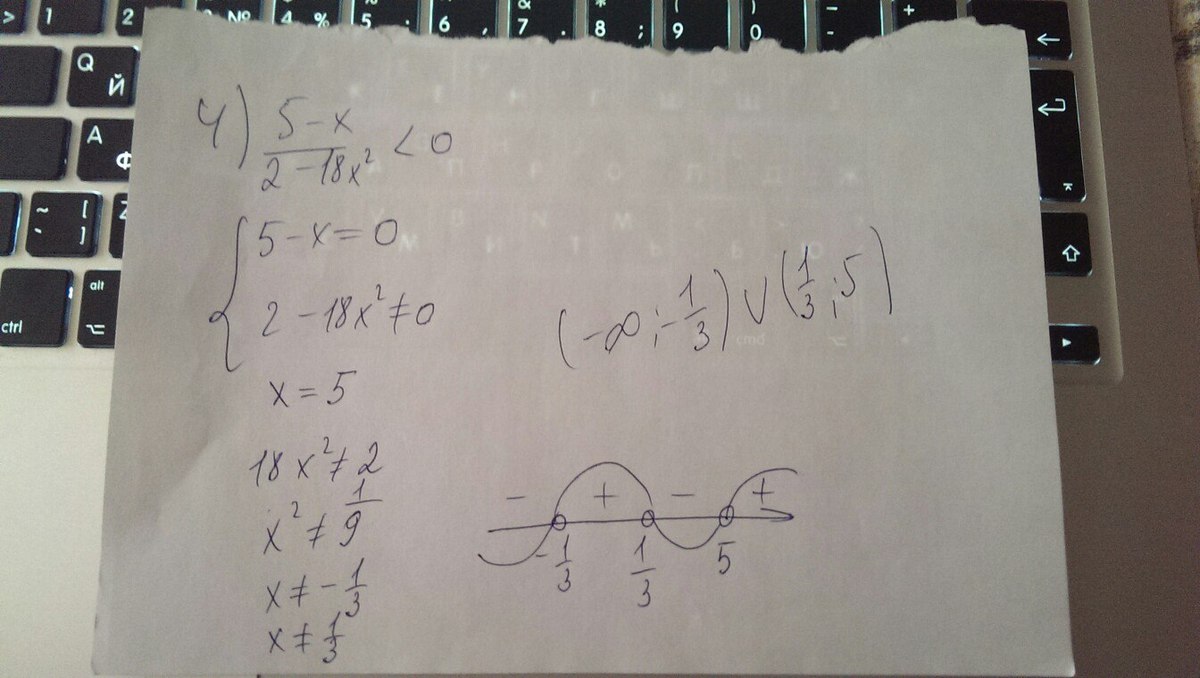 > 1 2 № 4 % 5 : & 6 , 7 . * 8 ; ( 9 ) 0 - - +
Q Й
A Ф
~ ` [ ]
ctrl alt
4) (5-x)/(2-18x²) < 0
{ 5-x=0
2-18x²≠0
x=5
18x²≠2
x²≠1/9
x≠-1/3
x≠1/3
(-∞;-1/3)∪(1/3;5)
- + - +
-1/3 1/3 5